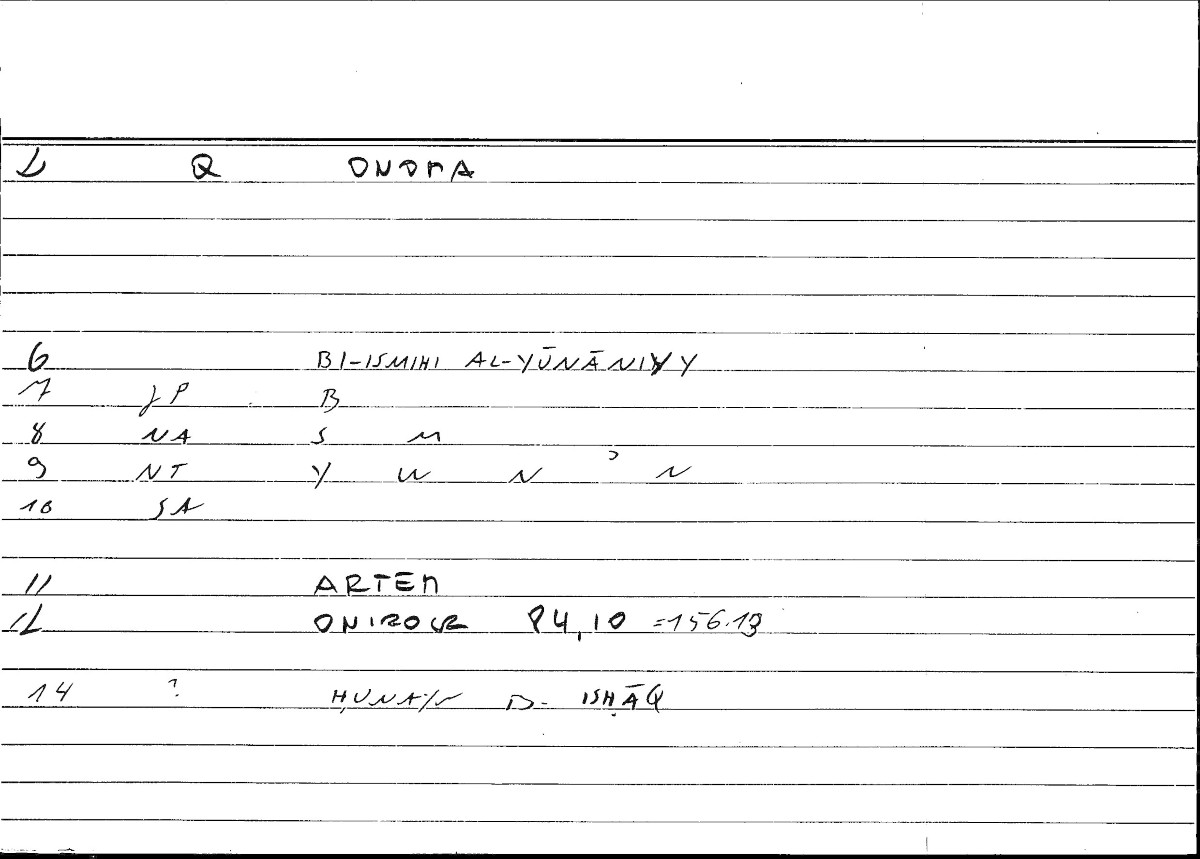 2 Q ONOMA
6 BI-ISMIHI AL-YŪNĀNIYY
7 JP B
8 NA S M
9 NT Y W N ʾ N
10 SA
11 ARTEM
12 ONIROCR 84,10 =156.13
14 ? ḤUNAYN B. ISḤĀQ